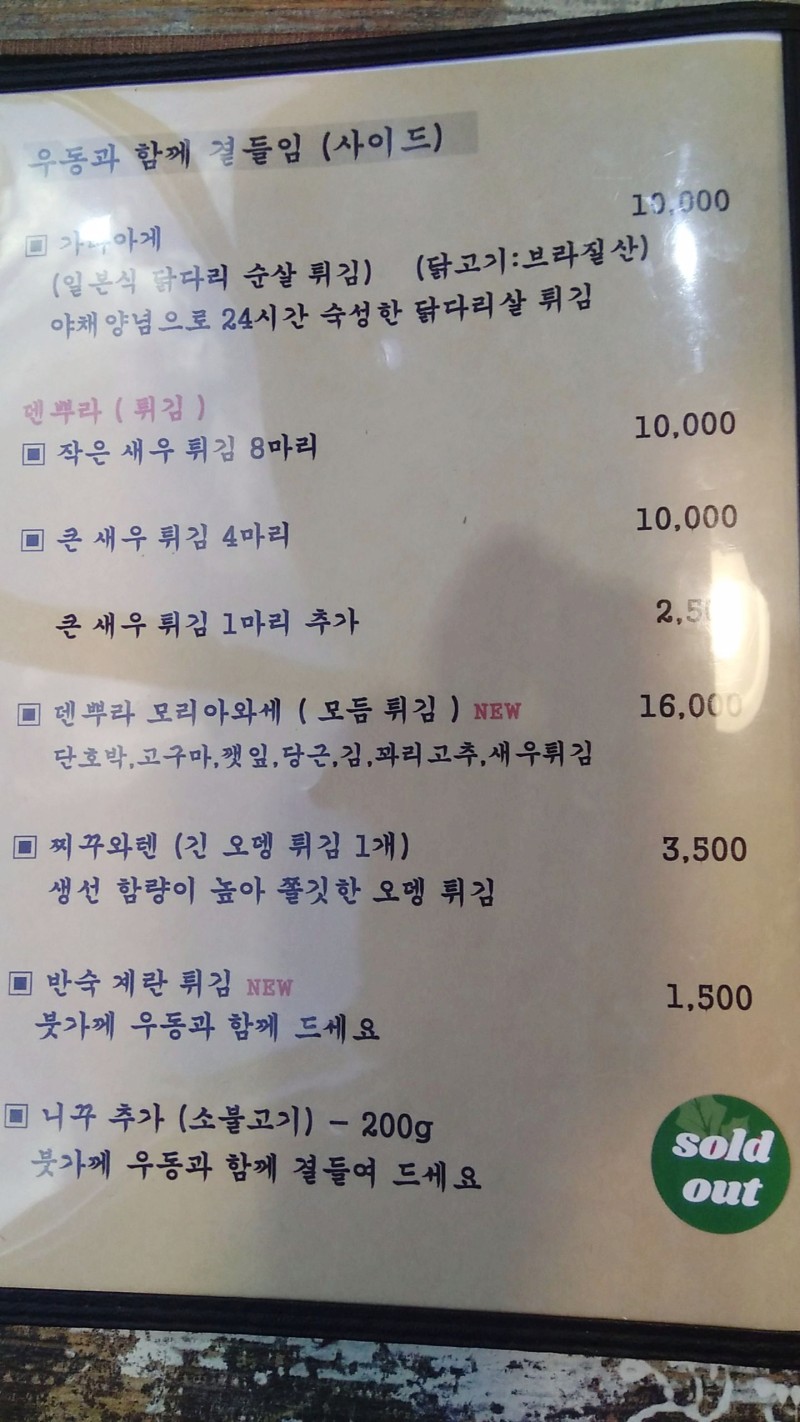 우동과 함께 곁들임 (사이드)
10,000
▣ 가라아게
(일본식 닭다리 순살 튀김) (닭고기:브라질산)
야채양념으로 24시간 숙성한 닭다리살 튀김
덴뿌라 ( 튀김 )
▣ 작은 새우 튀김 8마리 10,000
▣ 큰 새우 튀김 4마리 10,000
큰 새우 튀김 1마리 추가
▣ 덴뿌라 모리아와세 ( 모듬 튀김 ) NEW 16,000
단호박,고구마,깻잎,당근,김,꽈리고추,새우튀김
▣ 찌꾸와텐 (긴 오뎅 튀김 1개) 3,500
생선 함량이 높아 쫄깃한 오뎅 튀김
▣ 반숙 계란 튀김 NEW 1,500
붓가께 우동과 함께 드세요
▣ 니꾸 추가 (소불고기) – 200g
붓가께 우동과 함께 곁들여 드세요
sold
out